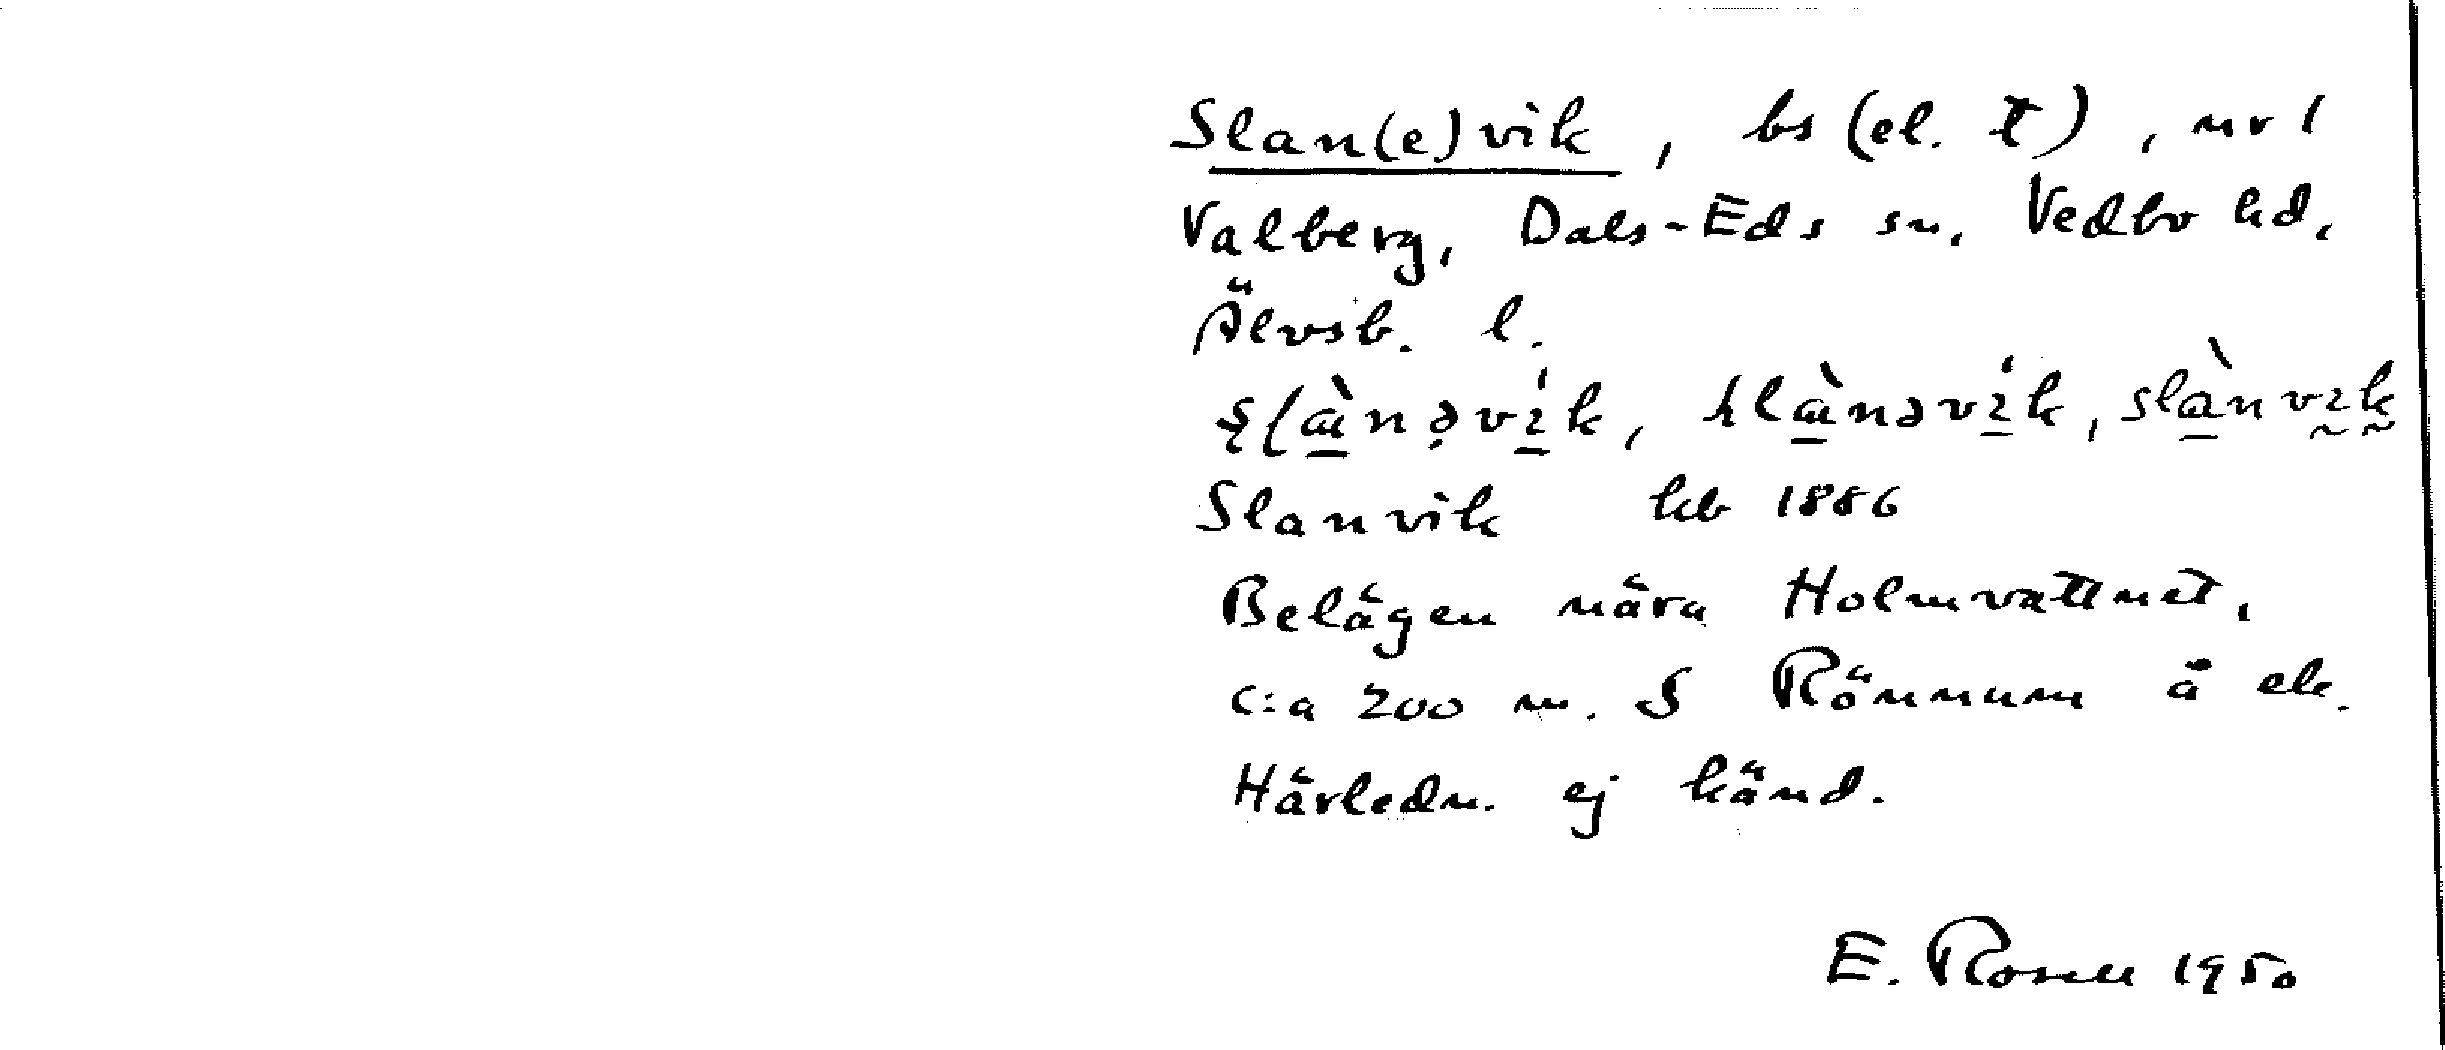 Slan(e)vik, bs (el. t), nr 1
Valberg, Dals-Eds sn, Vedbo hd,
Älvsb. l.
slànvik
Slanvik kb 1886
Belägen nära Holmvattnet,
c:a 200 m. S Rönnum å ek.
Härledn. ej känd.
E. Rosell 1950